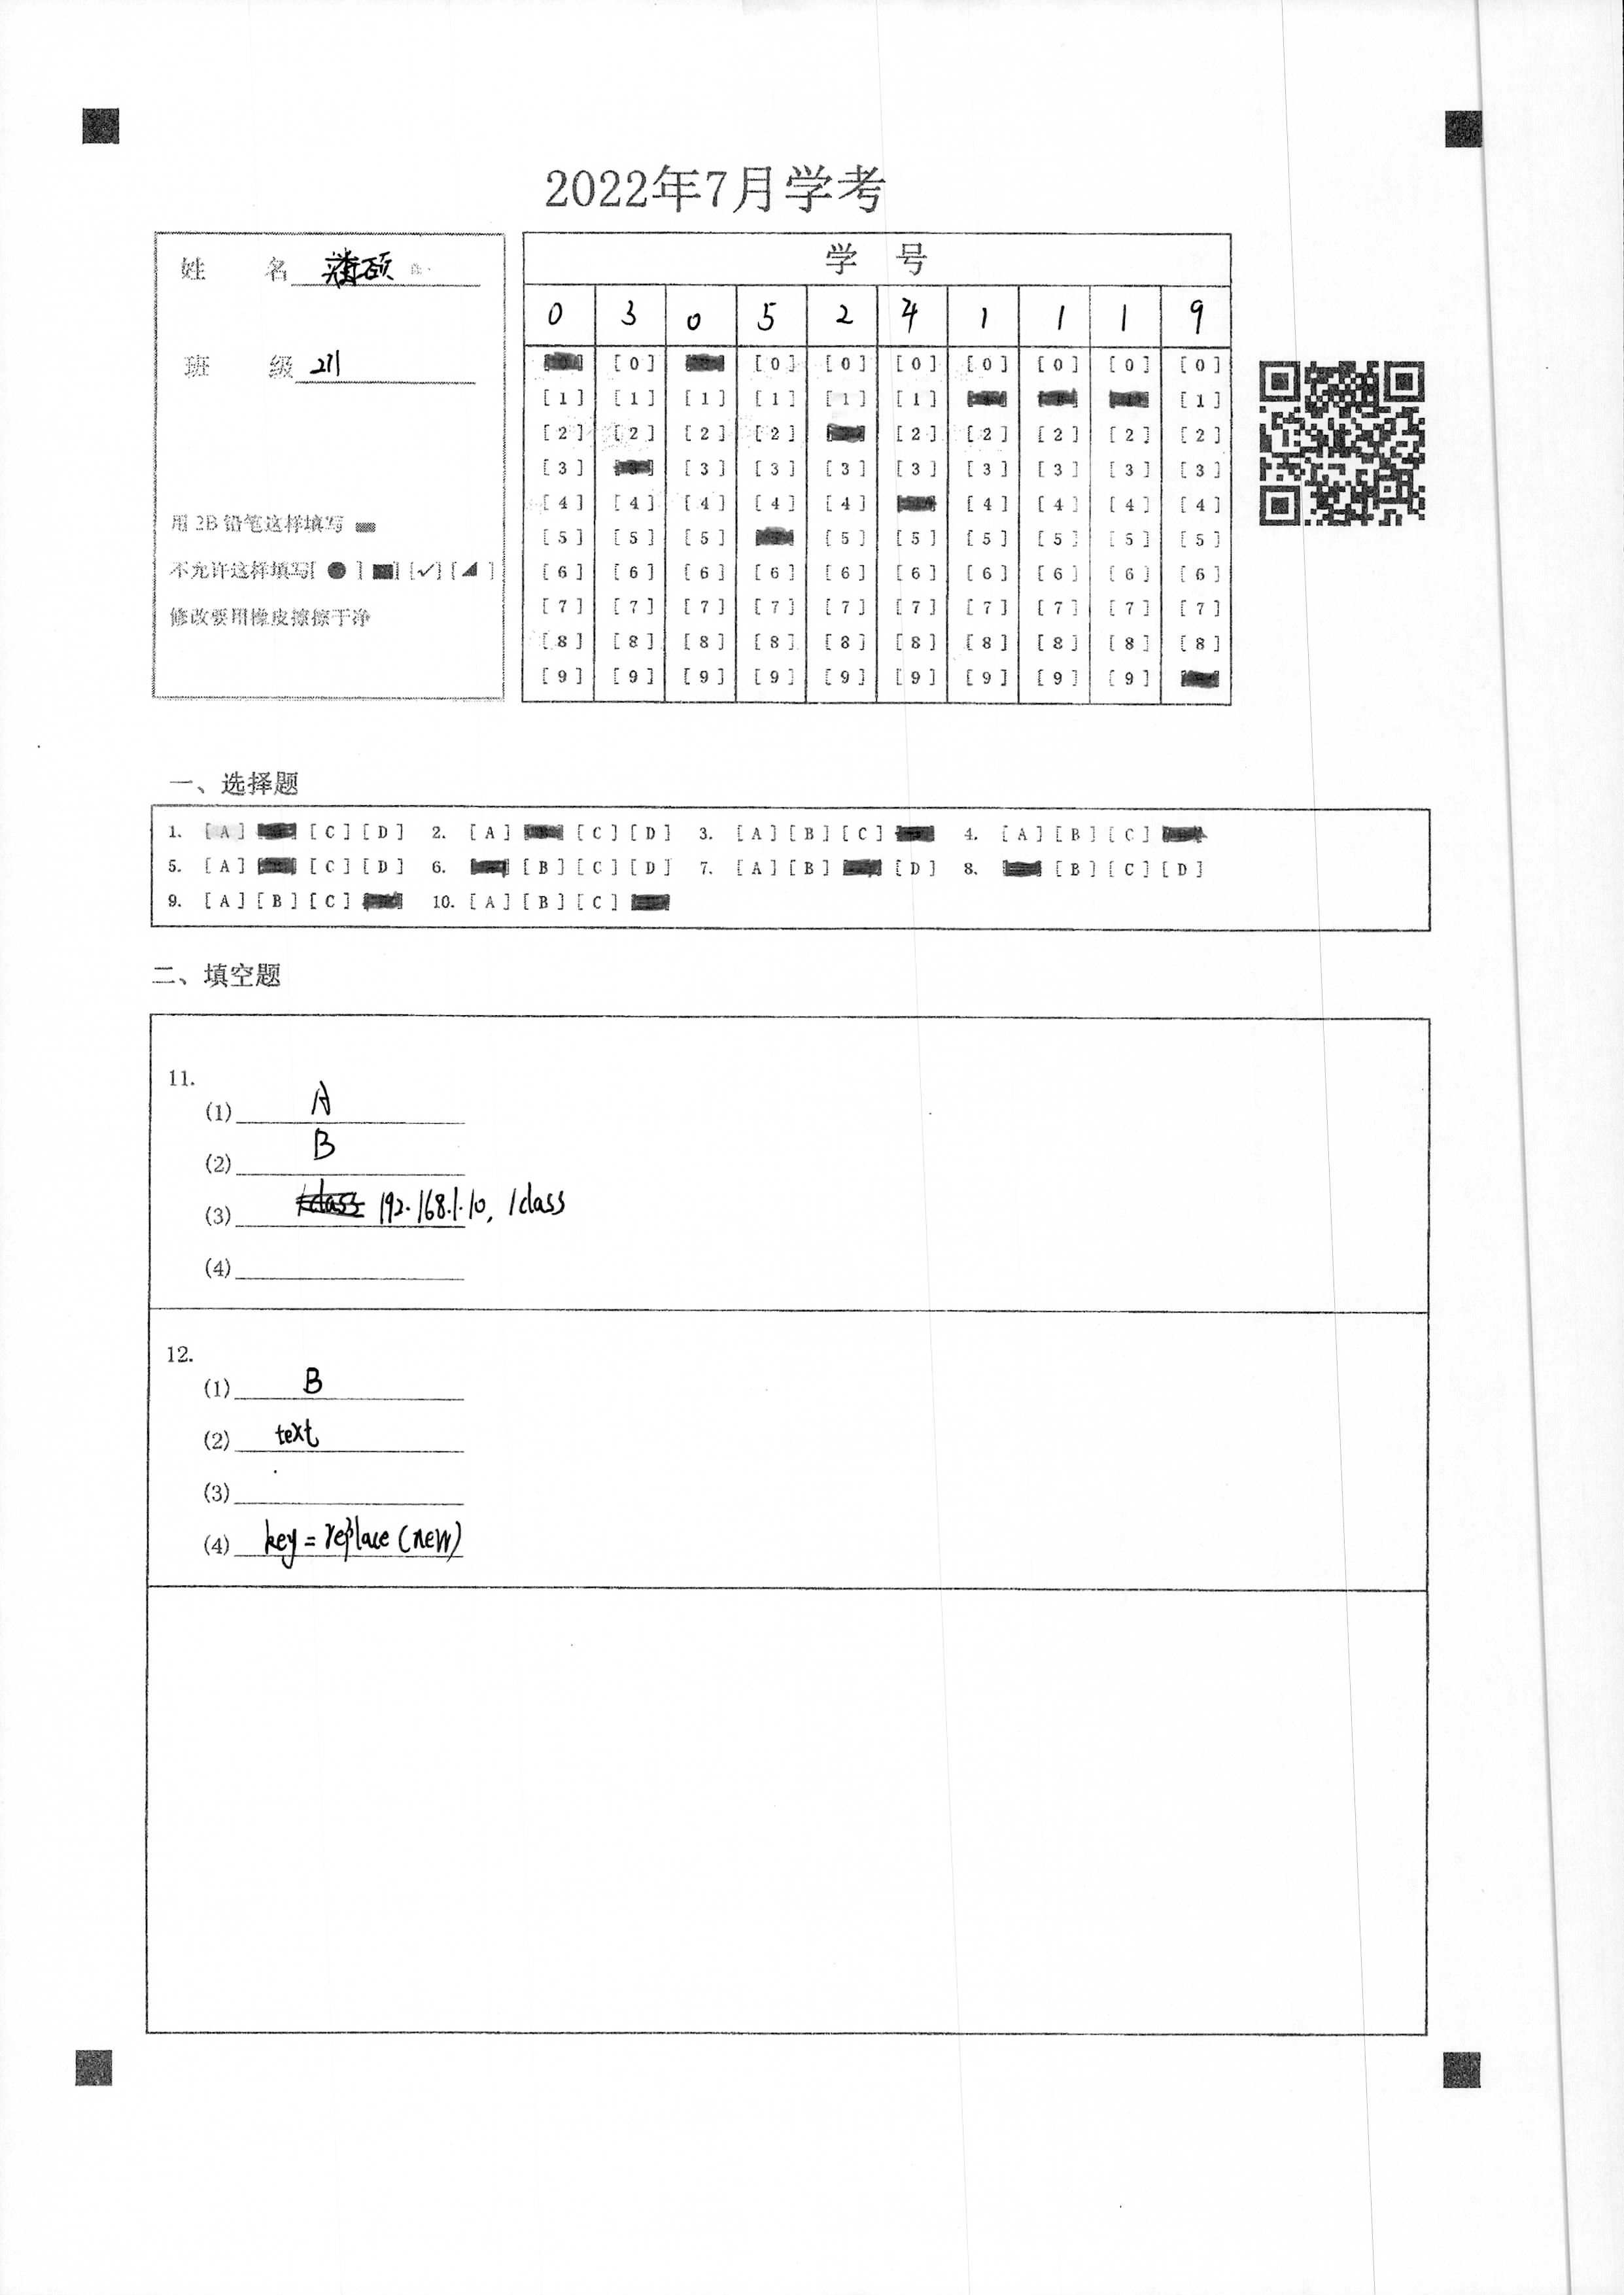 2022年7月学考
姓 名
班 级 211
用 2B 铅笔这样填写
不允许这样填写[ ● ] [■] [✓] [◢ ]
修改要用橡皮擦擦干净
学 号
0 3 0 5 2 4 1 1 1 9
[0] [0] [0] [0] [0] [0] [0]
[1] [1] [1] [1] [1] [1] [1]
[2] [2] [2] [2] [2] [2] [2] [2] [2]
[3] [3] [3] [3] [3] [3] [3] [3] [3]
[4] [4] [4] [4] [4] [4] [4] [4] [4]
[5] [5] [5] [5] [5] [5] [5] [5] [5]
[6] [6] [6] [6] [6] [6] [6] [6] [6] [6]
[7] [7] [7] [7] [7] [7] [7] [7] [7] [7]
[8] [8] [8] [8] [8] [8] [8] [8] [8] [8]
[9] [9] [9] [9] [9] [9] [9] [9] [9]
一、选择题
1. [A] [C] [D] 2. [A] [C] [D] 3. [A] [B] [C] 4. [A] [B] [C]
5. [A] [C] [D] 6. [B] [C] [D] 7. [A] [B] [D] 8. [B] [C] [D]
9. [A] [B] [C] 10. [A] [B] [C]
二、填空题
11.
(1) A
(2) B
(3) 192.168.1.10, /class
(4)
12.
(1) B
(2) text
(3)
(4) key = replace (new)